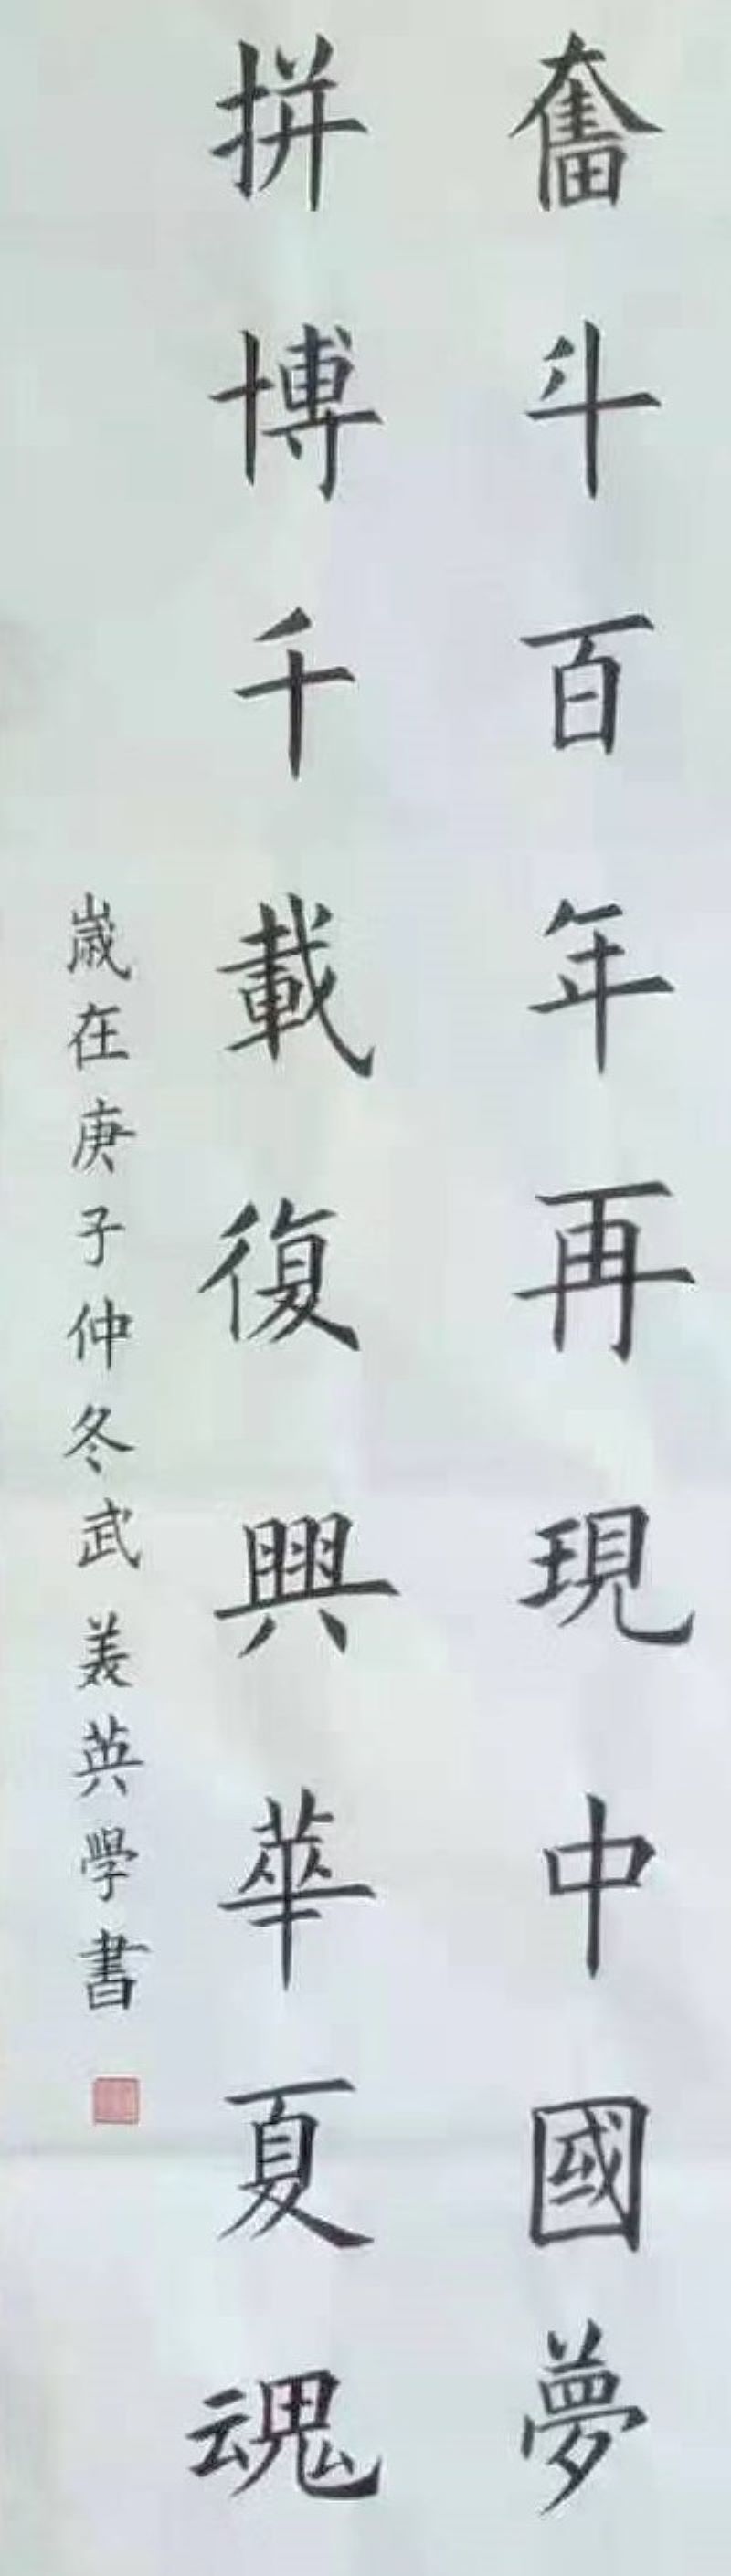 奮斗百年再現中國夢
拼博千載復興華夏魂
歲在庚子仲冬武美英學書